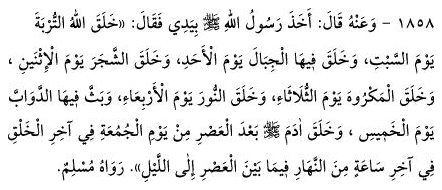 ١٨٥٨ - وَعَنْهُ قَالَ: أَخَذَ رَسُولُ اللهِ ﷺ بِيَدِي فَقَالَ: «خَلَقَ اللهُ التُّرْبَةَ
يَوْمَ السَّبْتِ، وَخَلَقَ فِيهَا الْجِبَالَ يَوْمَ الْأَحَدِ، وَخَلَقَ الشَّجَرَ يَوْمَ الْإِثْنَيْنِ،
وَخَلَقَ الْمَكْرُوهَ يَوْمَ الثُّلَاثَاءِ، وَخَلَقَ النُّورَ يَوْمَ الْأَرْبَعَاءِ، وَبَثَّ فِيهَا الدَّوَابَّ
يَوْمَ الْخَمِيسِ، وَخَلَقَ آدَمَ ﷺ بَعْدَ الْعَصْرِ مِنْ يَوْمِ الْجُمُعَةِ فِي آخِرِ الْخَلْقِ
فِي آخِرِ سَاعَةٍ مِنَ النَّهَارِ فِيمَا بَيْنَ الْعَصْرِ إِلَى اللَّيْلِ». رَوَاهُ مُسْلِمٌ.